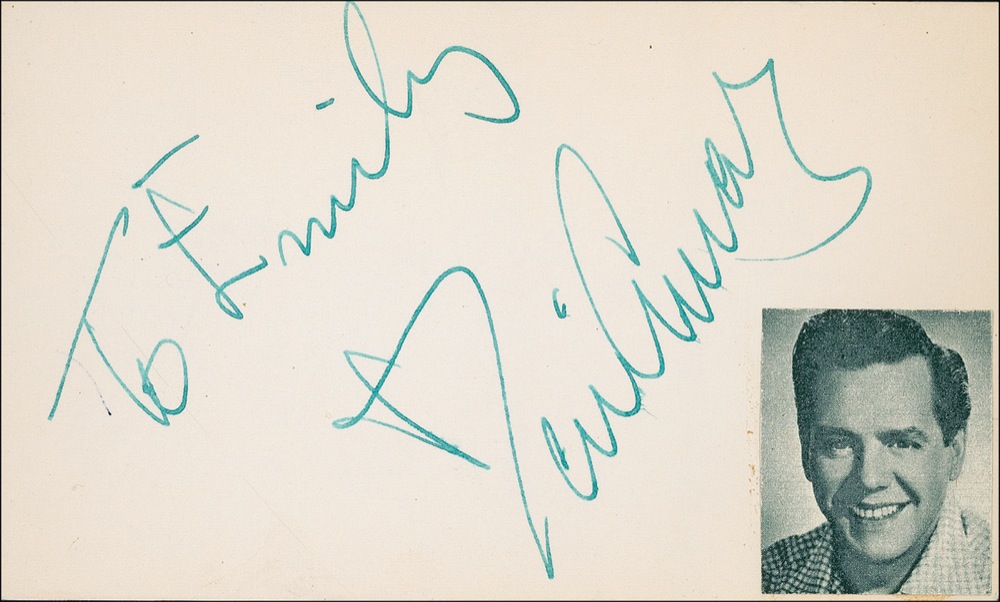 To Emily
Desi Arnaz